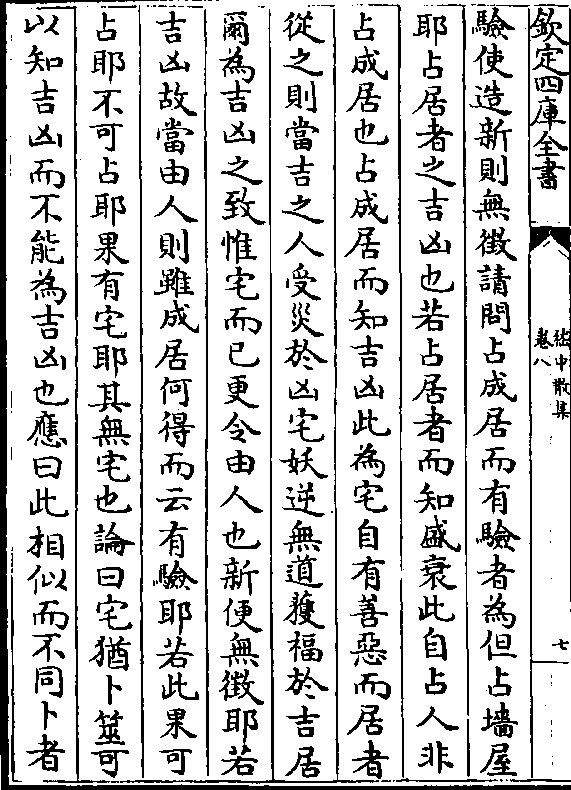 欽定四庫全書
嵇中散集
卷八
七
驗使造新則無徵請問占成居而有驗者為但占墻屋
耶占居者之吉凶也若占居者而知盛衰此自占人非
占成居也占成居而知吉凶此為宅自有善惡而居者
從之則當吉之人受災於凶宅妖逆無道獲福於吉居
爾為吉凶之致惟宅而已更令由人也新便無徵耶若
吉凶故當由人則雖成居何得而云有驗耶若此果可
占耶不可占耶果有宅耶其無宅也論曰宅猶卜筮可
以知吉凶而不能為吉凶也應曰此相似而不同卜者